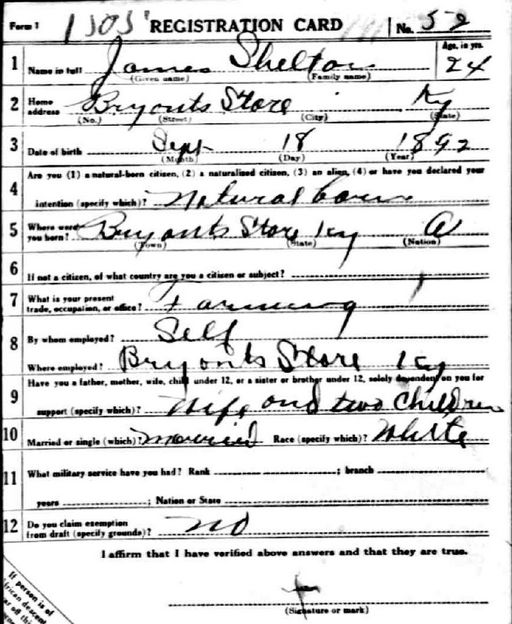 Form 1 1505 REGISTRATION CARD No. 52
1 Name in full James Shelton Age, in yrs. 24
(Given name) (Family name)
2 Home address Bryants Store Ky
(No.) (Street) (City) (State)
3 Date of birth Sept 18 1892
(Month) (Day) (Year)
4 Are you (1) a natural-born citizen, (2) a naturalized citizen, (3) an alien, (4) or have you declared your
intention (specify which)? Natural born
5 Where were you born? Bryants Store Ky
(Town) (State) (Nation)
6 If not a citizen, of what country are you a citizen or subject?
7 What is your present trade, occupation, or office? Farming
8 By whom employed? Self
Where employed? Bryants Store Ky
9 Have you a father, mother, wife, child under 12, or a sister or brother under 12, solely dependent on you for
support (specify which)? Wife and two Children
10 Married or single (which)? Married Race (specify which)? White
11 What military service have you had? Rank ; branch
years ; Nation or State
12 Do you claim exemption from draft (specify grounds)? No
I affirm that I have verified above answers and that they are true.
(Signature or mark)
If person is of
African descent